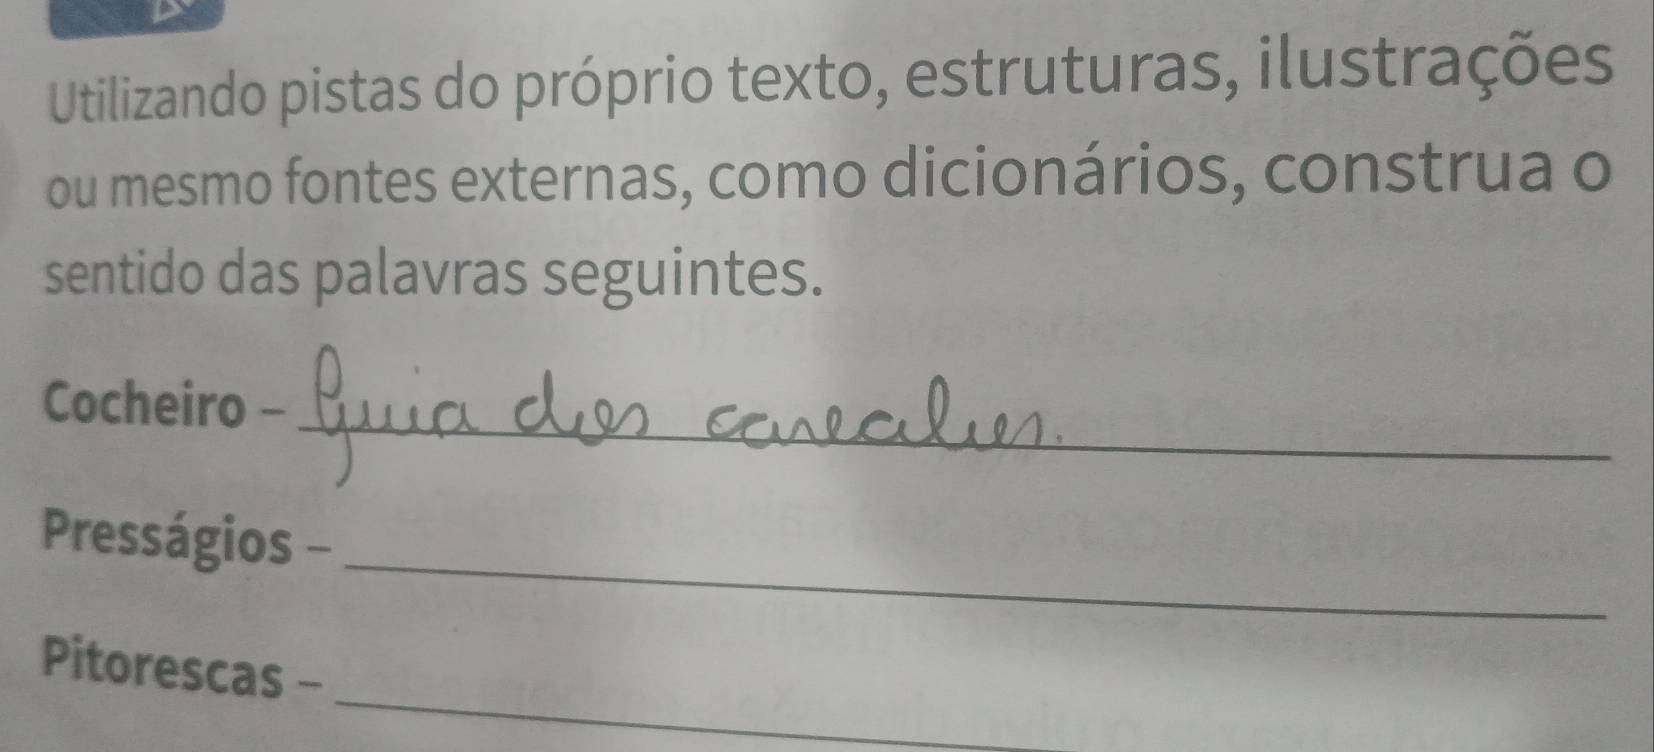 Utilizando pistas do próprio texto, estruturas, ilustrações
ou mesmo fontes externas, como dicionários, construa o
sentido das palavras seguintes.
Cocheiro - Guia dos cavalos.
Presságios -
Pitorescas -